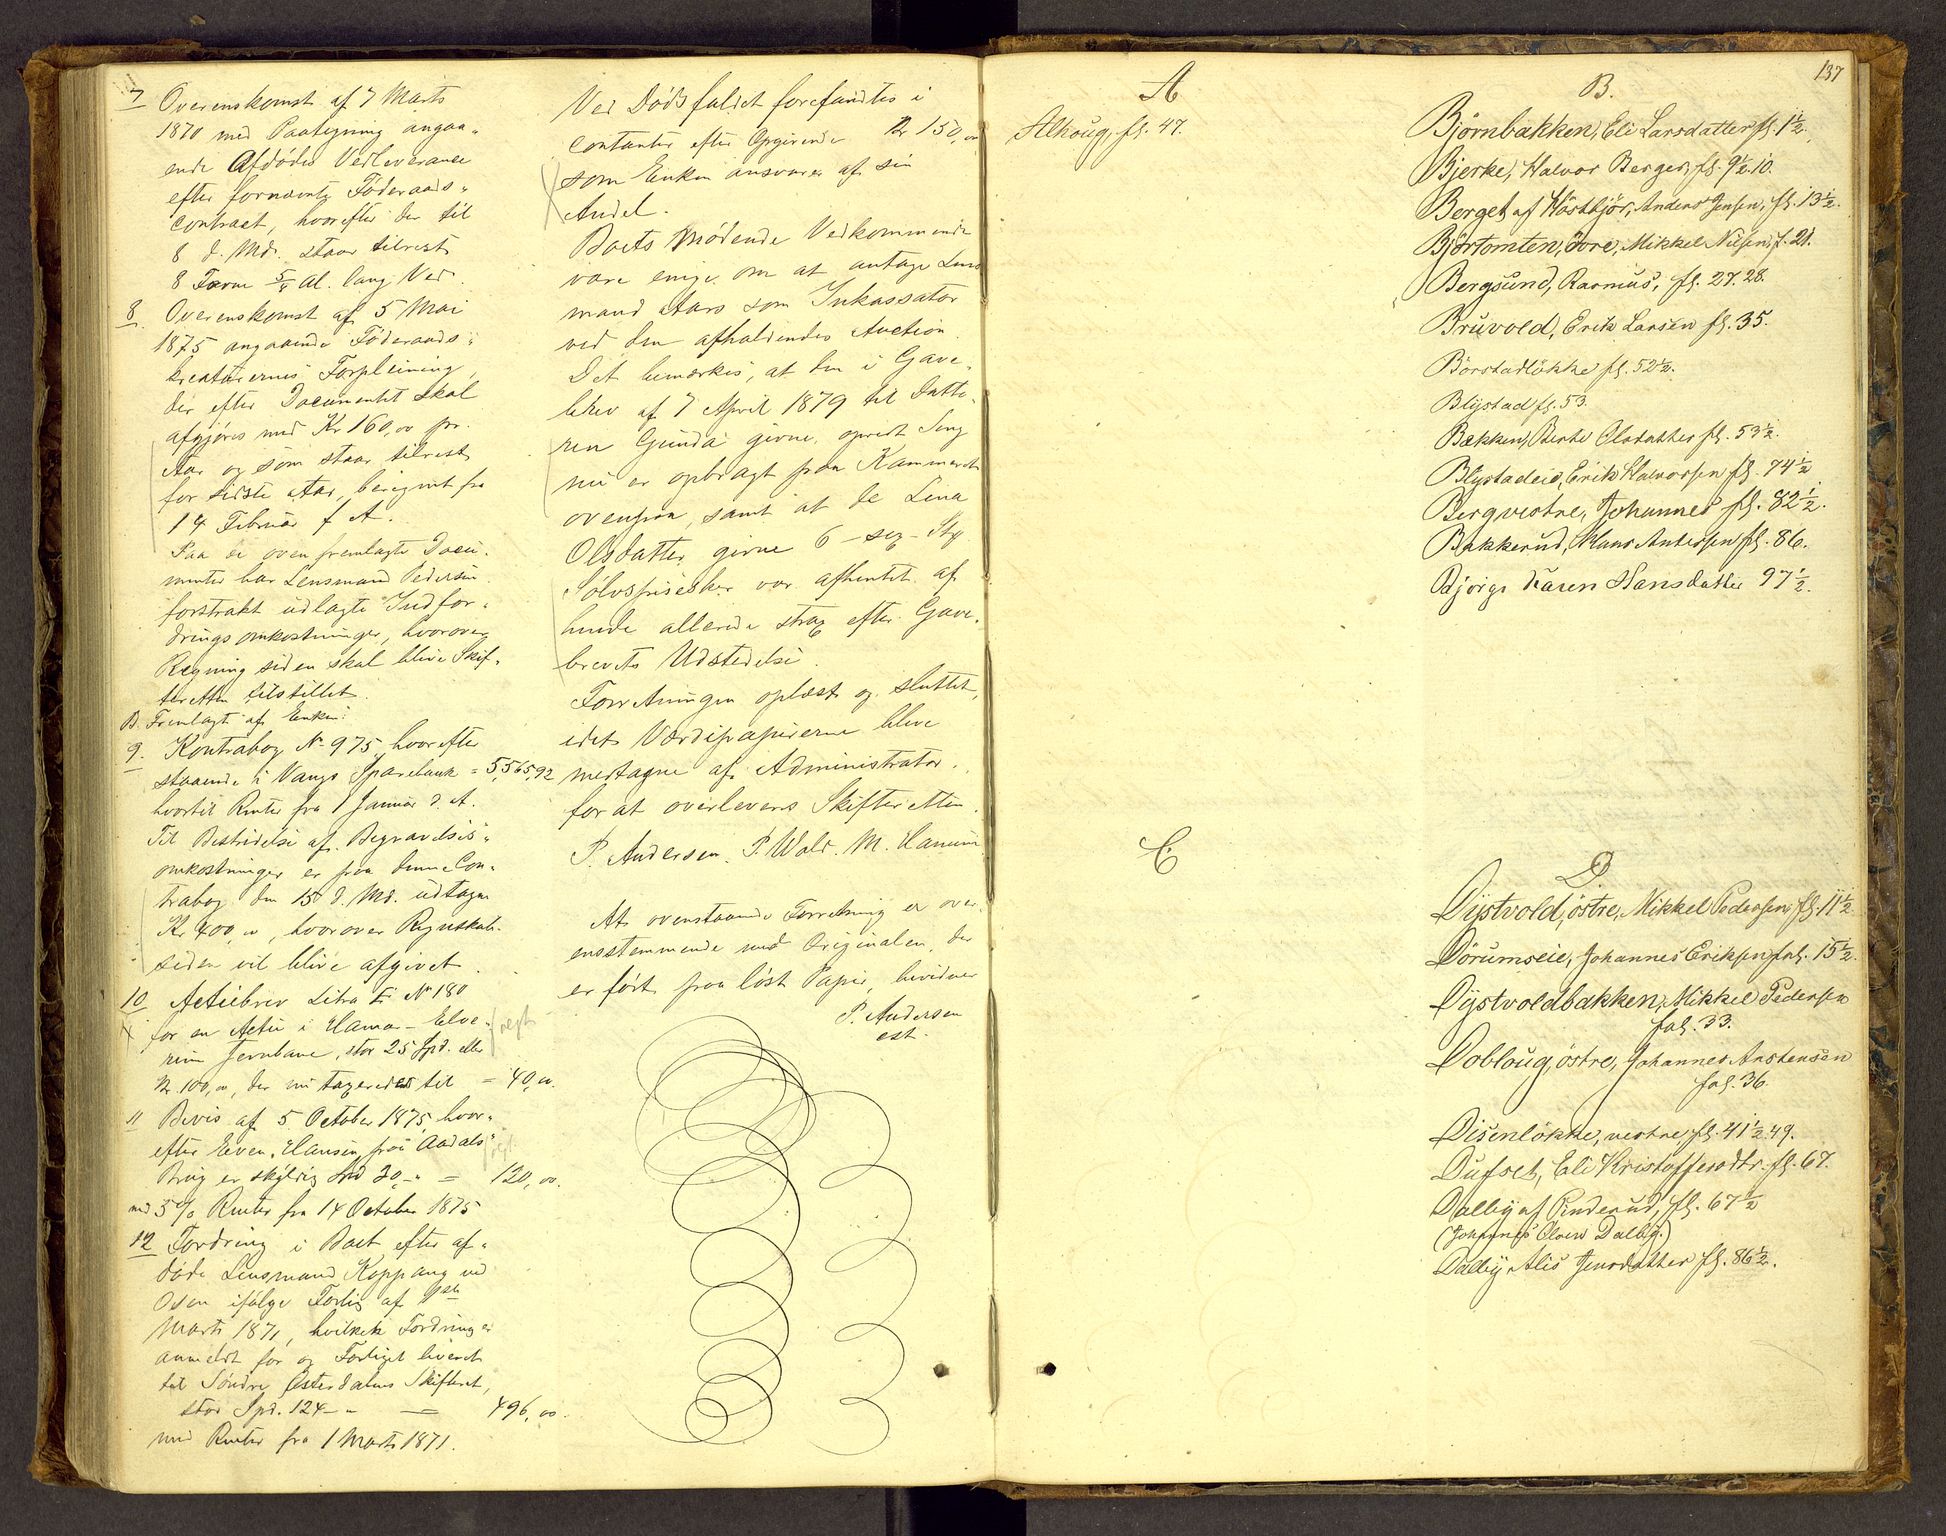 7 Overenskomst af 7 Marts
1870 med Paategning angaa-
ende Afdødes Vedleverance
efter fornævnte Føderaads-
contract, hvorefter der til
8 d. Md. staar tilrest
8 Favne 5/4 Al. lang Ved.
8. Overenskomst af 5 Mai
1875 angaaende Føderaads-
kreaturernes Forpleining,
der efter Documentet skal
afgjøres med Kr 160,00 pr.
Aar og som staar tilrest
for sidste Aar, beregnet fra
14 Februar f. A.
Paa de oven fremlagte Docu-
menter har Lensmand Pedersen
forstrakt udlagte Indfor-
drings omkostninger, hvorover
Regning siden skal blive Skif-
teretten tilstillet.
B. Fremlagt af Enken:
9. Kontrabog No 975, hvorefter
staaende i Vangs Sparebank = 5,565,92
hvortil Renter fra 1 Januar d. A.
Til Bestridelse af Begravelses-
omkostninger er fra denne Con-
trabog den 15 d. Md. udtagen
Kr 400,00, hvorover Regnskab
siden vil blive afgivet.
10 Actiebrev Litra E No 180
for en Actie i Hamar-Elve-
rum Jernbane, stor 25 Spd. eller
Kr. 100,00, der nu taxeredes til = 40,00.
11 Bevis af 5 October 1875, hvor-
efter Even Hansen fra Aadals
Brug er skyldig Spd 30,-" = 120,00.
med 5% Renter fra 14 October 1875
12 Fordring i Boet efter af-
døde Lensmand Koppang ved
Osen ifølge Forlig af 1ste
Marts 1871, hvilken Fordring er
anmeldt for og Forliget leveret
til Søndre Østerdalens Skifteret,
stor Spd. 124-" = 496,00.
med Renter fra 1 Marts 1871.
Ved Dødsfaldet forefandtes i
contanter efter Opgivende Kr 150,00
som Enken ansvarer af sin
Andel.
Boets mødende Vedkommende
vare enige om at antage Lens
mand Aars som Inkassator
ved den afholdendes Auction.
Det bemærkes, at den i Gave-
brev af 7 April 1879 til Datte-
ren Gunda givne, opredt Seng
nu er opbragt paa Kammeret
ovenpaa, samt at de Lena
Olsdatter givne 6 - sex - Stk.
Sølvspiseskeer var afhentet af
hende allerede strax efter Gave-
brevets Udstedelse.
Forretningen oplæst og sluttet,
idet Værdipapirerne bleve
medtagne af Administrator,
for at overleveres Skifteretten.
P. Andersen. P. Wold. M. Hanum
At ovenstaaende Forretning er over-
ensstemmende med Originalen, der
er ført paa løst Papir, bevidner
P. Andersen
est.
137
A
Alhoug, fl. 47.
C.
B.
Bjørnbakken, Eli Larsdatter fl. 1½.
Bjerke, Halvor Berger, fl. 9½. 10.
Berget af Høstbjør, Anders Jensen, fl. 13½.
Bjørtomten, øvre, Mikkel Nilsen, f. 21.
Bergsund, Rasmus, fl. 27. 28.
Bruvold, Erik Larsen fl. 35.
Børstadløkke fl. 52½.
Blystad fl. 53.
Bækken, Berte Olsdatter fl. 53½.
Blystadeie, Erik Halvorsen fl. 74½
Berg vestre, Johannes fl. 82½.
Bakkerud, Hans Andersen fl. 86.
Bjørge Karen Hansdatter 97½.
D.
Dystvold, østre, Mikkel Pedersen fl. 11½
Dørumseie, Johannes Eriksen fol. 15½.
Dystvoldbakken, Mikkel Pedersen
fol. 33.
Dobloug, østre, Johannes Anstensen
fol. 36.
Disenløkke, vestre, fl. 41½. 49.
Dufset, Eli Kristoffersdtr. fl. 67.
Dalby af Pinderud, fl. 67½
(Johannes Olsen Dalby.)
Dalby Alis Jensdatter fl. 86½.